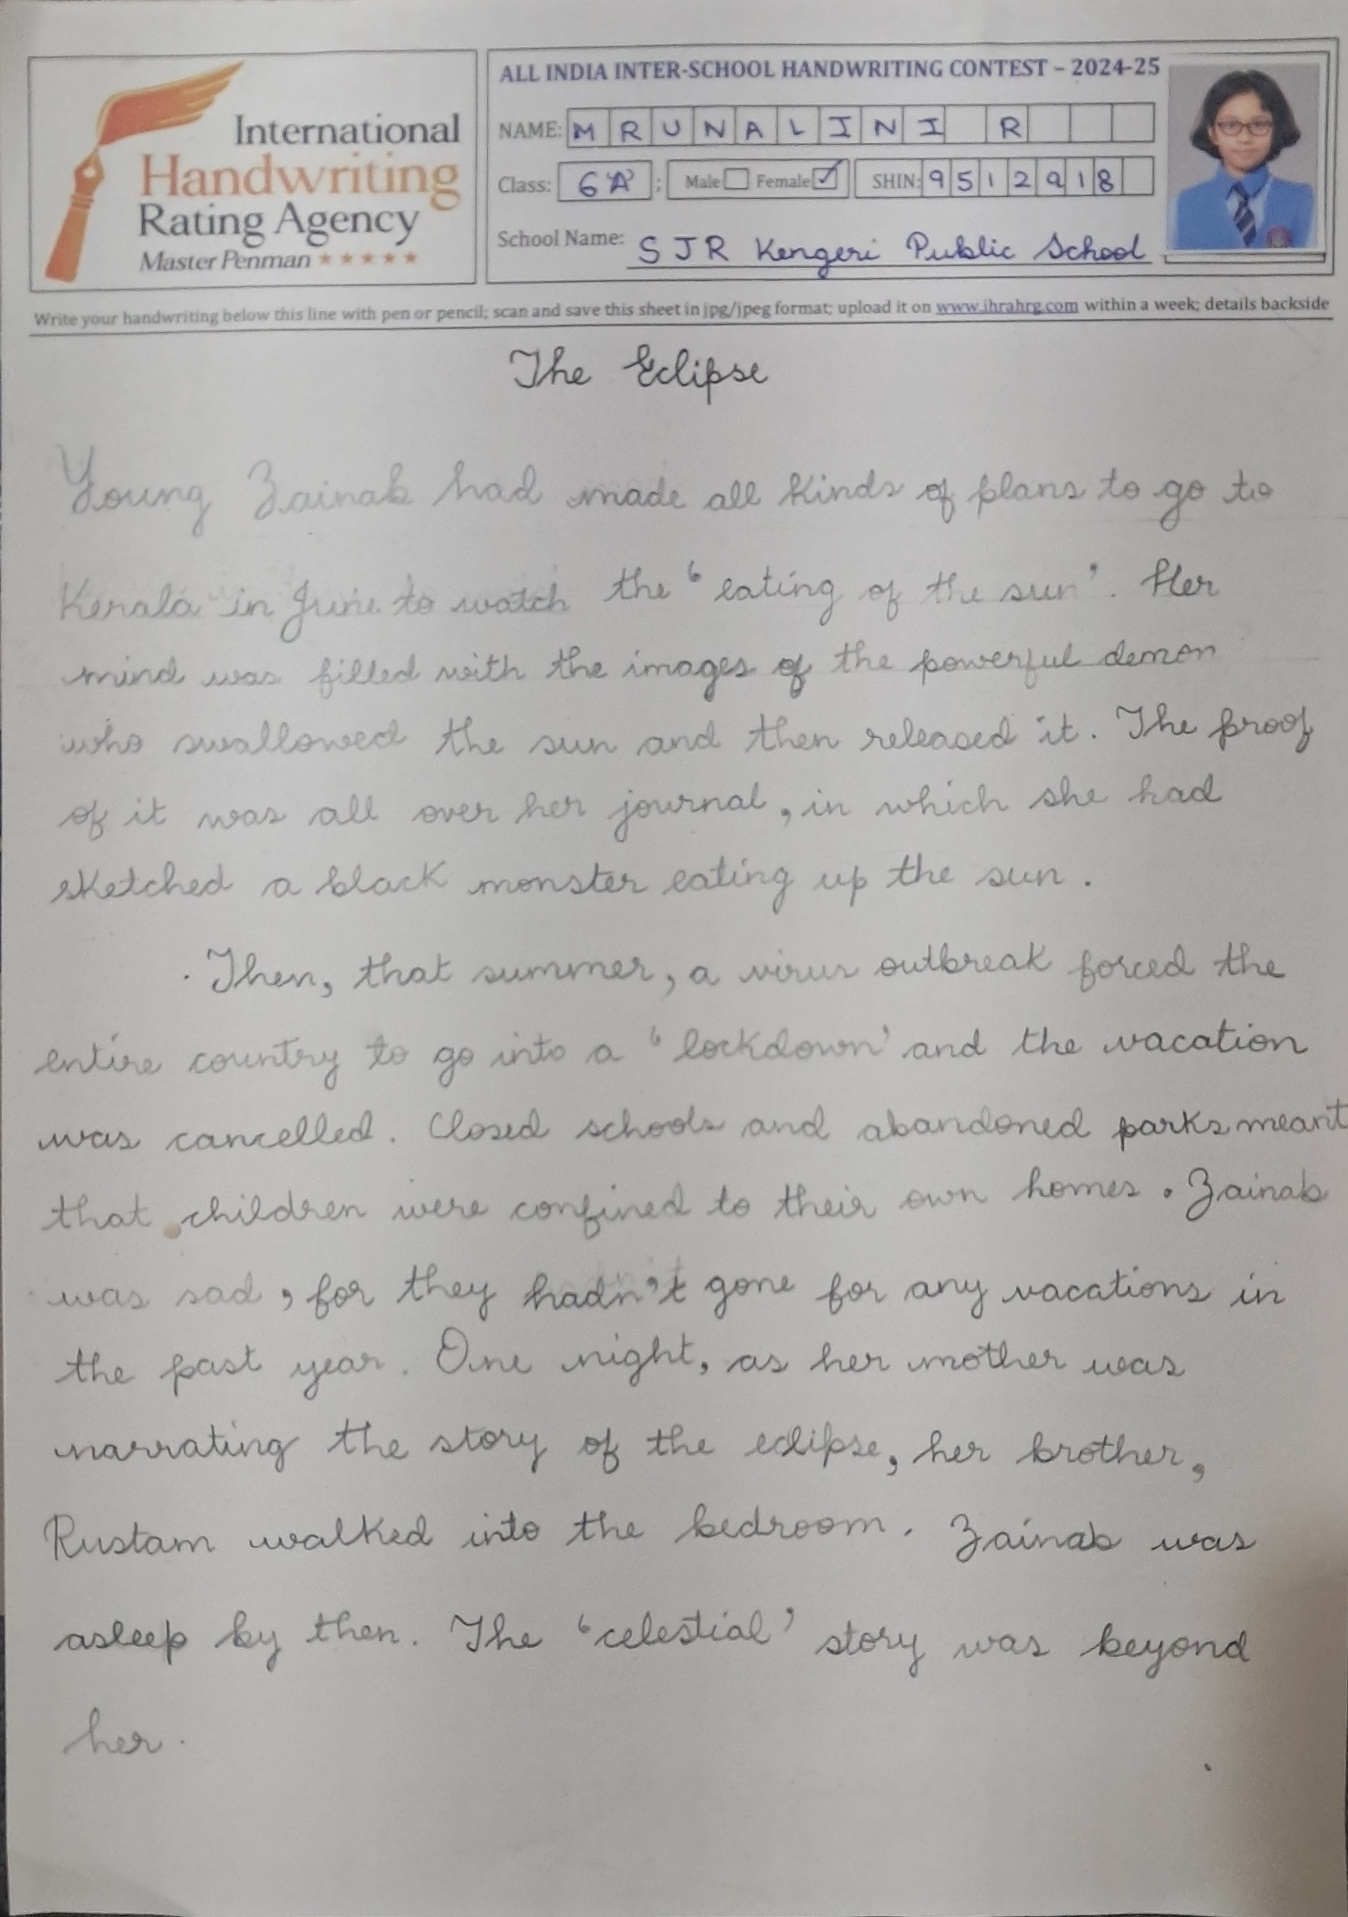 International
Handwriting
Rating Agency
Master Penman ★★★★★
ALL INDIA INTER-SCHOOL HANDWRITING CONTEST – 2024-25
NAME: MRUNALINI R
Class: 6'A' ; Male Female ✓ SHIN: 9512918
School Name: SJR Kengeri Public School
Write your handwriting below this line with pen or pencil; scan and save this sheet in jpg/jpeg format; upload it on www.ihrahrg.com within a week; details backside
The Eclipse
Young Zainab had made all kinds of plans to go to
Kerala in June to watch the 'eating of the sun'. Her
mind was filled with the images of the powerful demon
who swallowed the sun and then released it. The proof
of it was all over her journal, in which she had
sketched a black monster eating up the sun.
Then, that summer, a virus outbreak forced the
entire country to go into a 'lockdown' and the vacation
was cancelled. Closed schools and abandoned parks meant
that children were confined to their own homes. Zainab
was sad, for they hadn't gone for any vacations in
the past year. One night, as her mother was
narrating the story of the eclipse, her brother,
Rustam walked into the bedroom. Zainab was
asleep by then. The 'celestial' story was beyond
her.